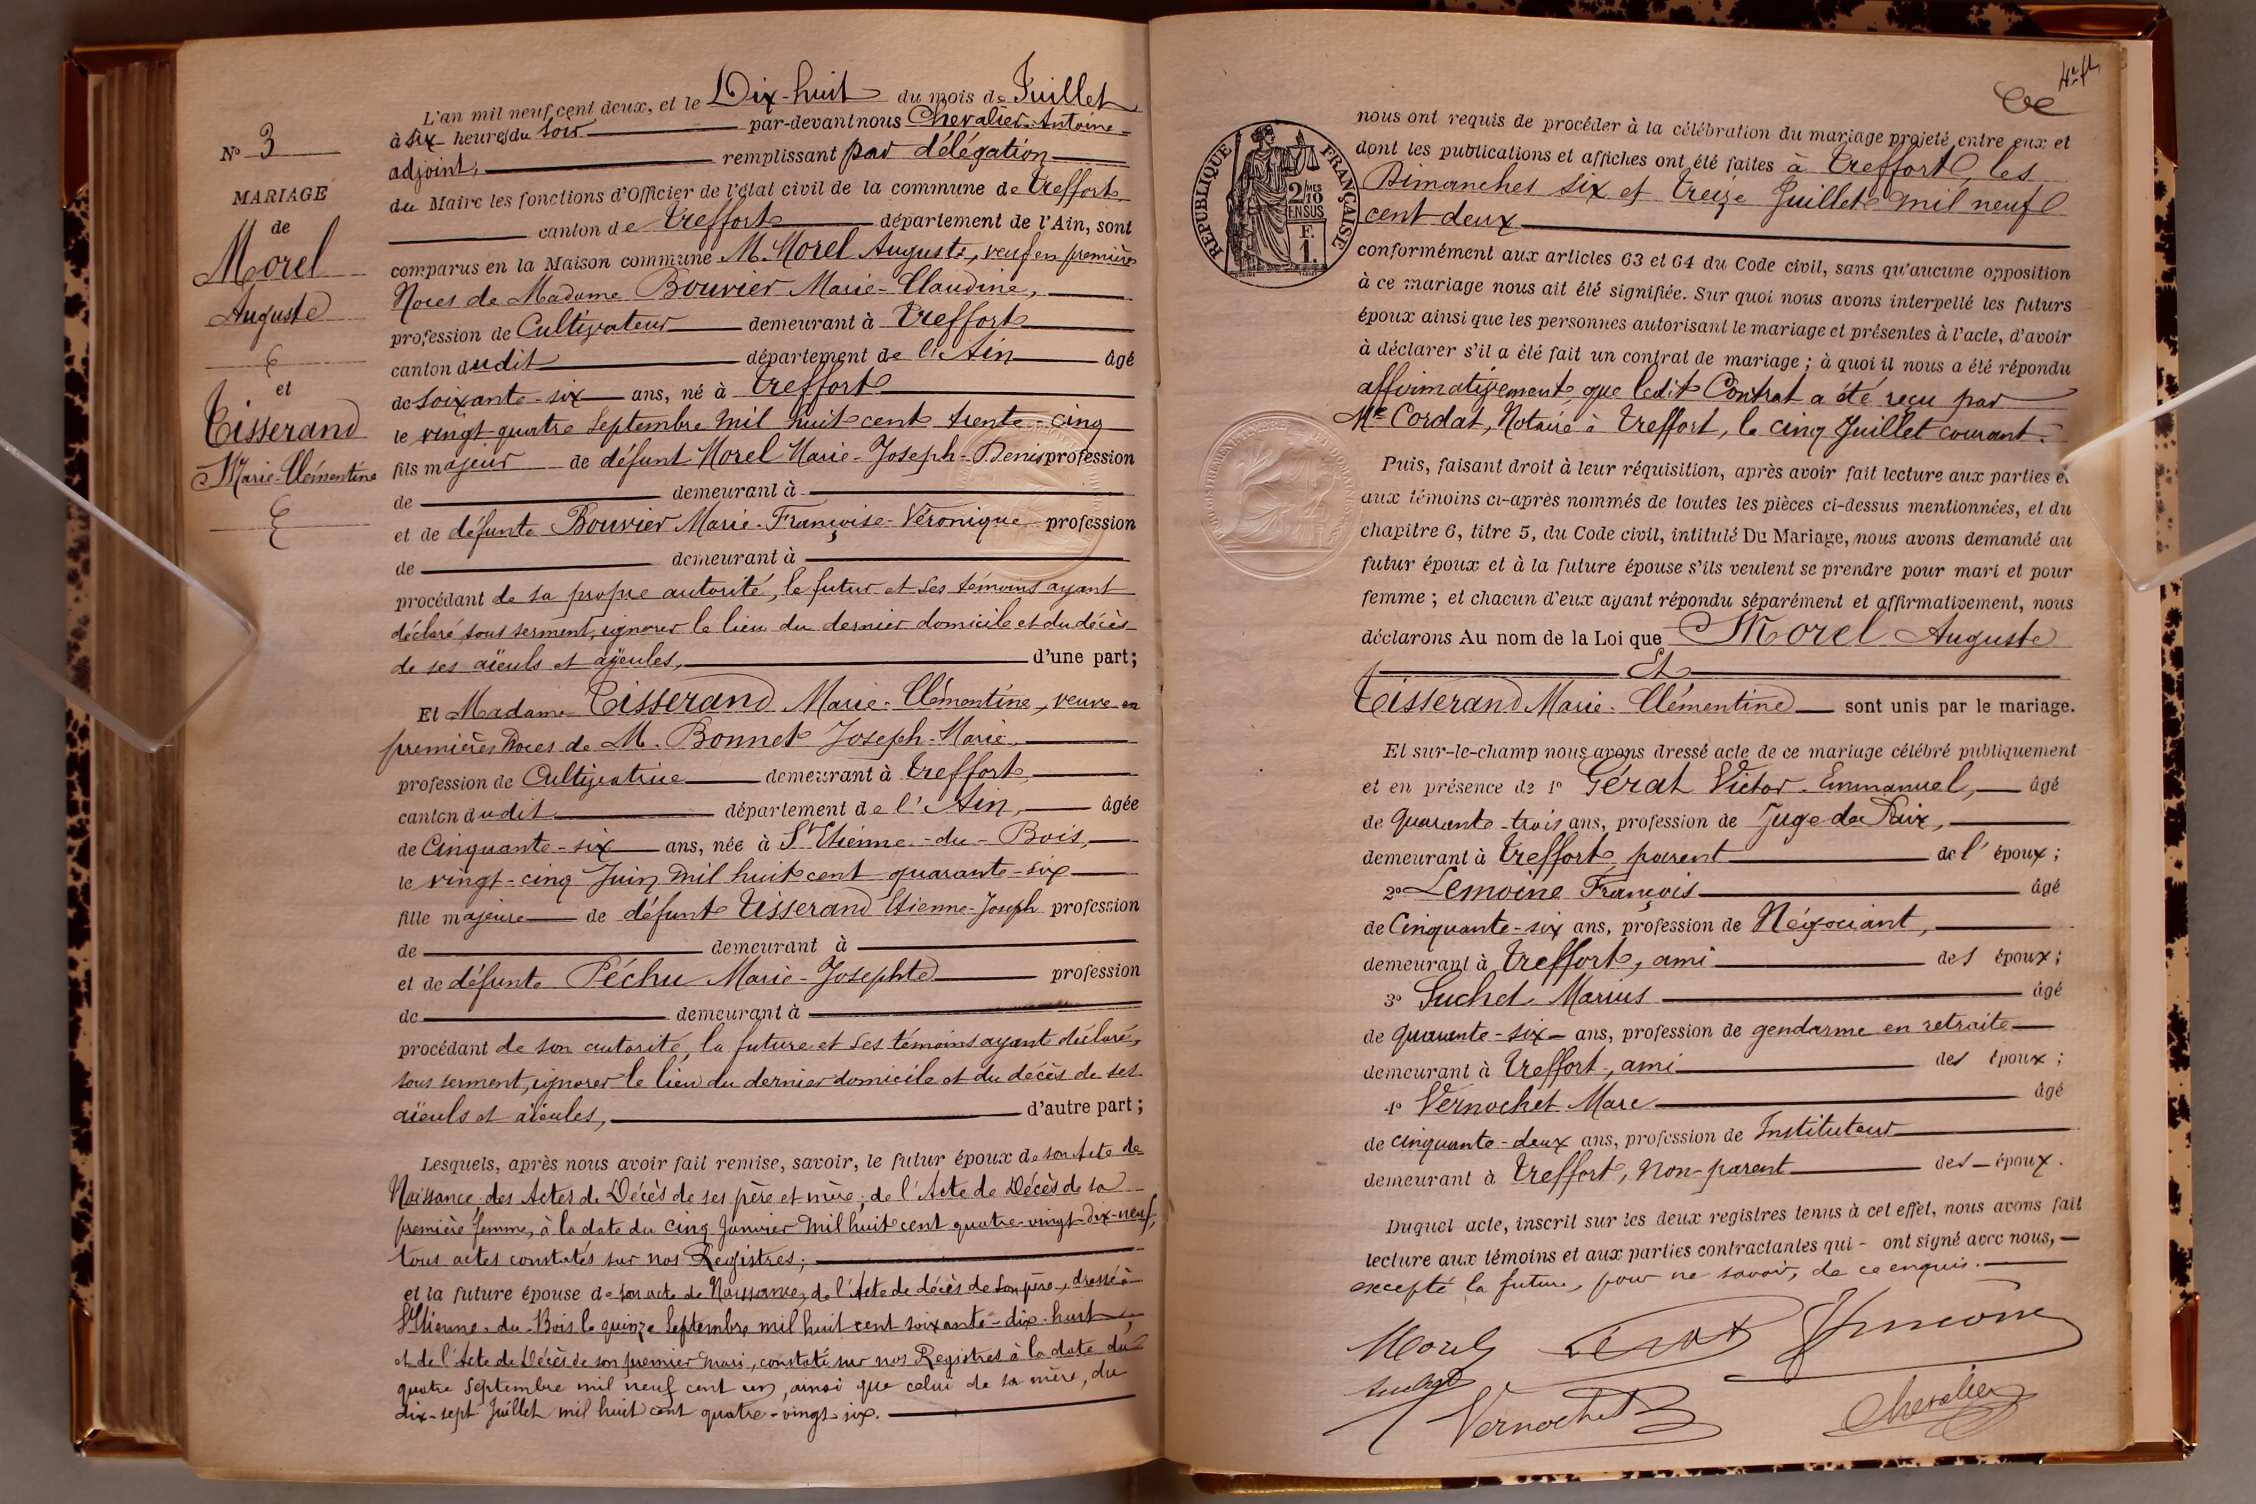 N° 3
MARIAGE
de
Morel
Auguste
et
Tisserand
Marie-Clémentine
L'an mil neuf cent deux, et le Dix-huit du mois de Juillet
à six heures du soir par-devant nous Chevalier Antoine
adjoint, remplissant par délégation
du Maire les fonctions d'Officier de l'état civil de la commune de Treffort
canton de Treffort département de l'Ain, sont
comparus en la Maison commune M. Morel Auguste, veuf en premières
Noces de Madame Bouvier Marie-Claudine,
profession de Cultivateur demeurant à Treffort
canton dudit département de l'Ain âgé
de soixante-six ans, né à Treffort
le vingt-quatre Septembre mil huit cent trente-cinq
fils majeur de défunt Morel Marie-Joseph-Denis profession
de demeurant à
et de défunte Bouvier Marie-Françoise-Véronique profession
de demeurant à
procédant de sa propre autorité, le futur et ses témoins ayant
déclaré, sous serment, ignorer le lieu du dernier domicile et du décès
de ses aïeuls et ayeules, d'une part;
Et Madame Tisserand Marie-Clémentine, veuve en
premières Noces de M. Bonnet Joseph-Marie,
profession de Cultivatrice demeurant à Treffort,
canton dudit département de l'Ain, âgée
de Cinquante-six ans, née à St Etienne-du-Bois,
le vingt-cinq Juin mil huit cent quarante-six
fille majeure de défunt Tisserand Etienne-Joseph profession
de demeurant à
et de défunte Péchu Marie-Josephte profession
de demeurant à
procédant de son autorité, la future et ses témoins ayant déclaré,
sous serment, ignorer le lieu du dernier domicile et du décès de ses
aïeuls et aïeules, d'autre part;
Lesquels, après nous avoir fait remise, savoir, le futur époux de son Acte de
Naissance, des Actes de Décès de ses père et mère; de l'Acte de Décès de sa
première femme, à la date du cinq Janvier mil huit cent quatre-vingt-dix-neuf,
tous actes constatés sur nos Registres;
et la future épouse de son acte de Naissance, de l'Acte de décès de son père, dressé à
St Etienne-du-Bois le quinze Septembre mil huit cent soixante-dix-huit,
et de l'Acte de Décès de son premier mari, constaté sur nos Registres à la date du
quatre Septembre mil neuf cent un, ainsi que celui de sa mère, du
dix-sept Juillet mil huit cent quatre-vingt-six.
RÉPUBLIQUE FRANÇAISE
2/10 MES
EN SUS
F.
1.
nous ont requis de procéder à la célébration du mariage projeté entre eux et
dont les publications et affiches ont été faites à Treffort, les
Dimanches six et treize Juillet mil neuf
cent deux
conformément aux articles 63 et 64 du Code civil, sans qu'aucune opposition
à ce mariage nous ait été signifiée. Sur quoi nous avons interpellé les futurs
époux ainsi que les personnes autorisant le mariage et présentes à l'acte, d'avoir
à déclarer s'il a été fait un contrat de mariage; à quoi il nous a été répondu
affirmativement, que ledit Contrat a été reçu par
Me Cordat, Notaire à Treffort, le cinq Juillet courant.
Puis, faisant droit à leur réquisition, après avoir fait lecture aux parties et
aux témoins ci-après nommés de toutes les pièces ci-dessus mentionnées, et du
chapitre 6, titre 5, du Code civil, intitulé Du Mariage, nous avons demandé au
futur époux et à la future épouse s'ils veulent se prendre pour mari et pour
femme; et chacun d'eux ayant répondu séparément et affirmativement, nous
déclarons Au nom de la Loi que Morel Auguste
Et
Tisserand Marie-Clémentine sont unis par le mariage.
Et sur-le-champ nous avons dressé acte de ce mariage célébré publiquement
et en présence de 1° Gérat Victor-Emmanuel, âgé
de quarante-trois ans, profession de Juge de Paix,
demeurant à Treffort, parent de l'époux;
2° Lemoine François âgé
de Cinquante-six ans, profession de Négociant,
demeurant à Treffort, ami des époux;
3° Suchet Marius âgé
de quarante-six ans, profession de gendarme en retraite
demeurant à Treffort, ami des époux;
4° Vernochet Marc âgé
de cinquante-deux ans, profession de Instituteur
demeurant à Treffort, non-parent des époux.
Duquel acte, inscrit sur les deux registres tenus à cet effet, nous avons fait
lecture aux témoins et aux parties contractantes qui ont signé avec nous,
excepté la future, pour ne savoir, de ce enquis.
Morel Gerat Lemoine
Suchet
Vernochet Chevalier